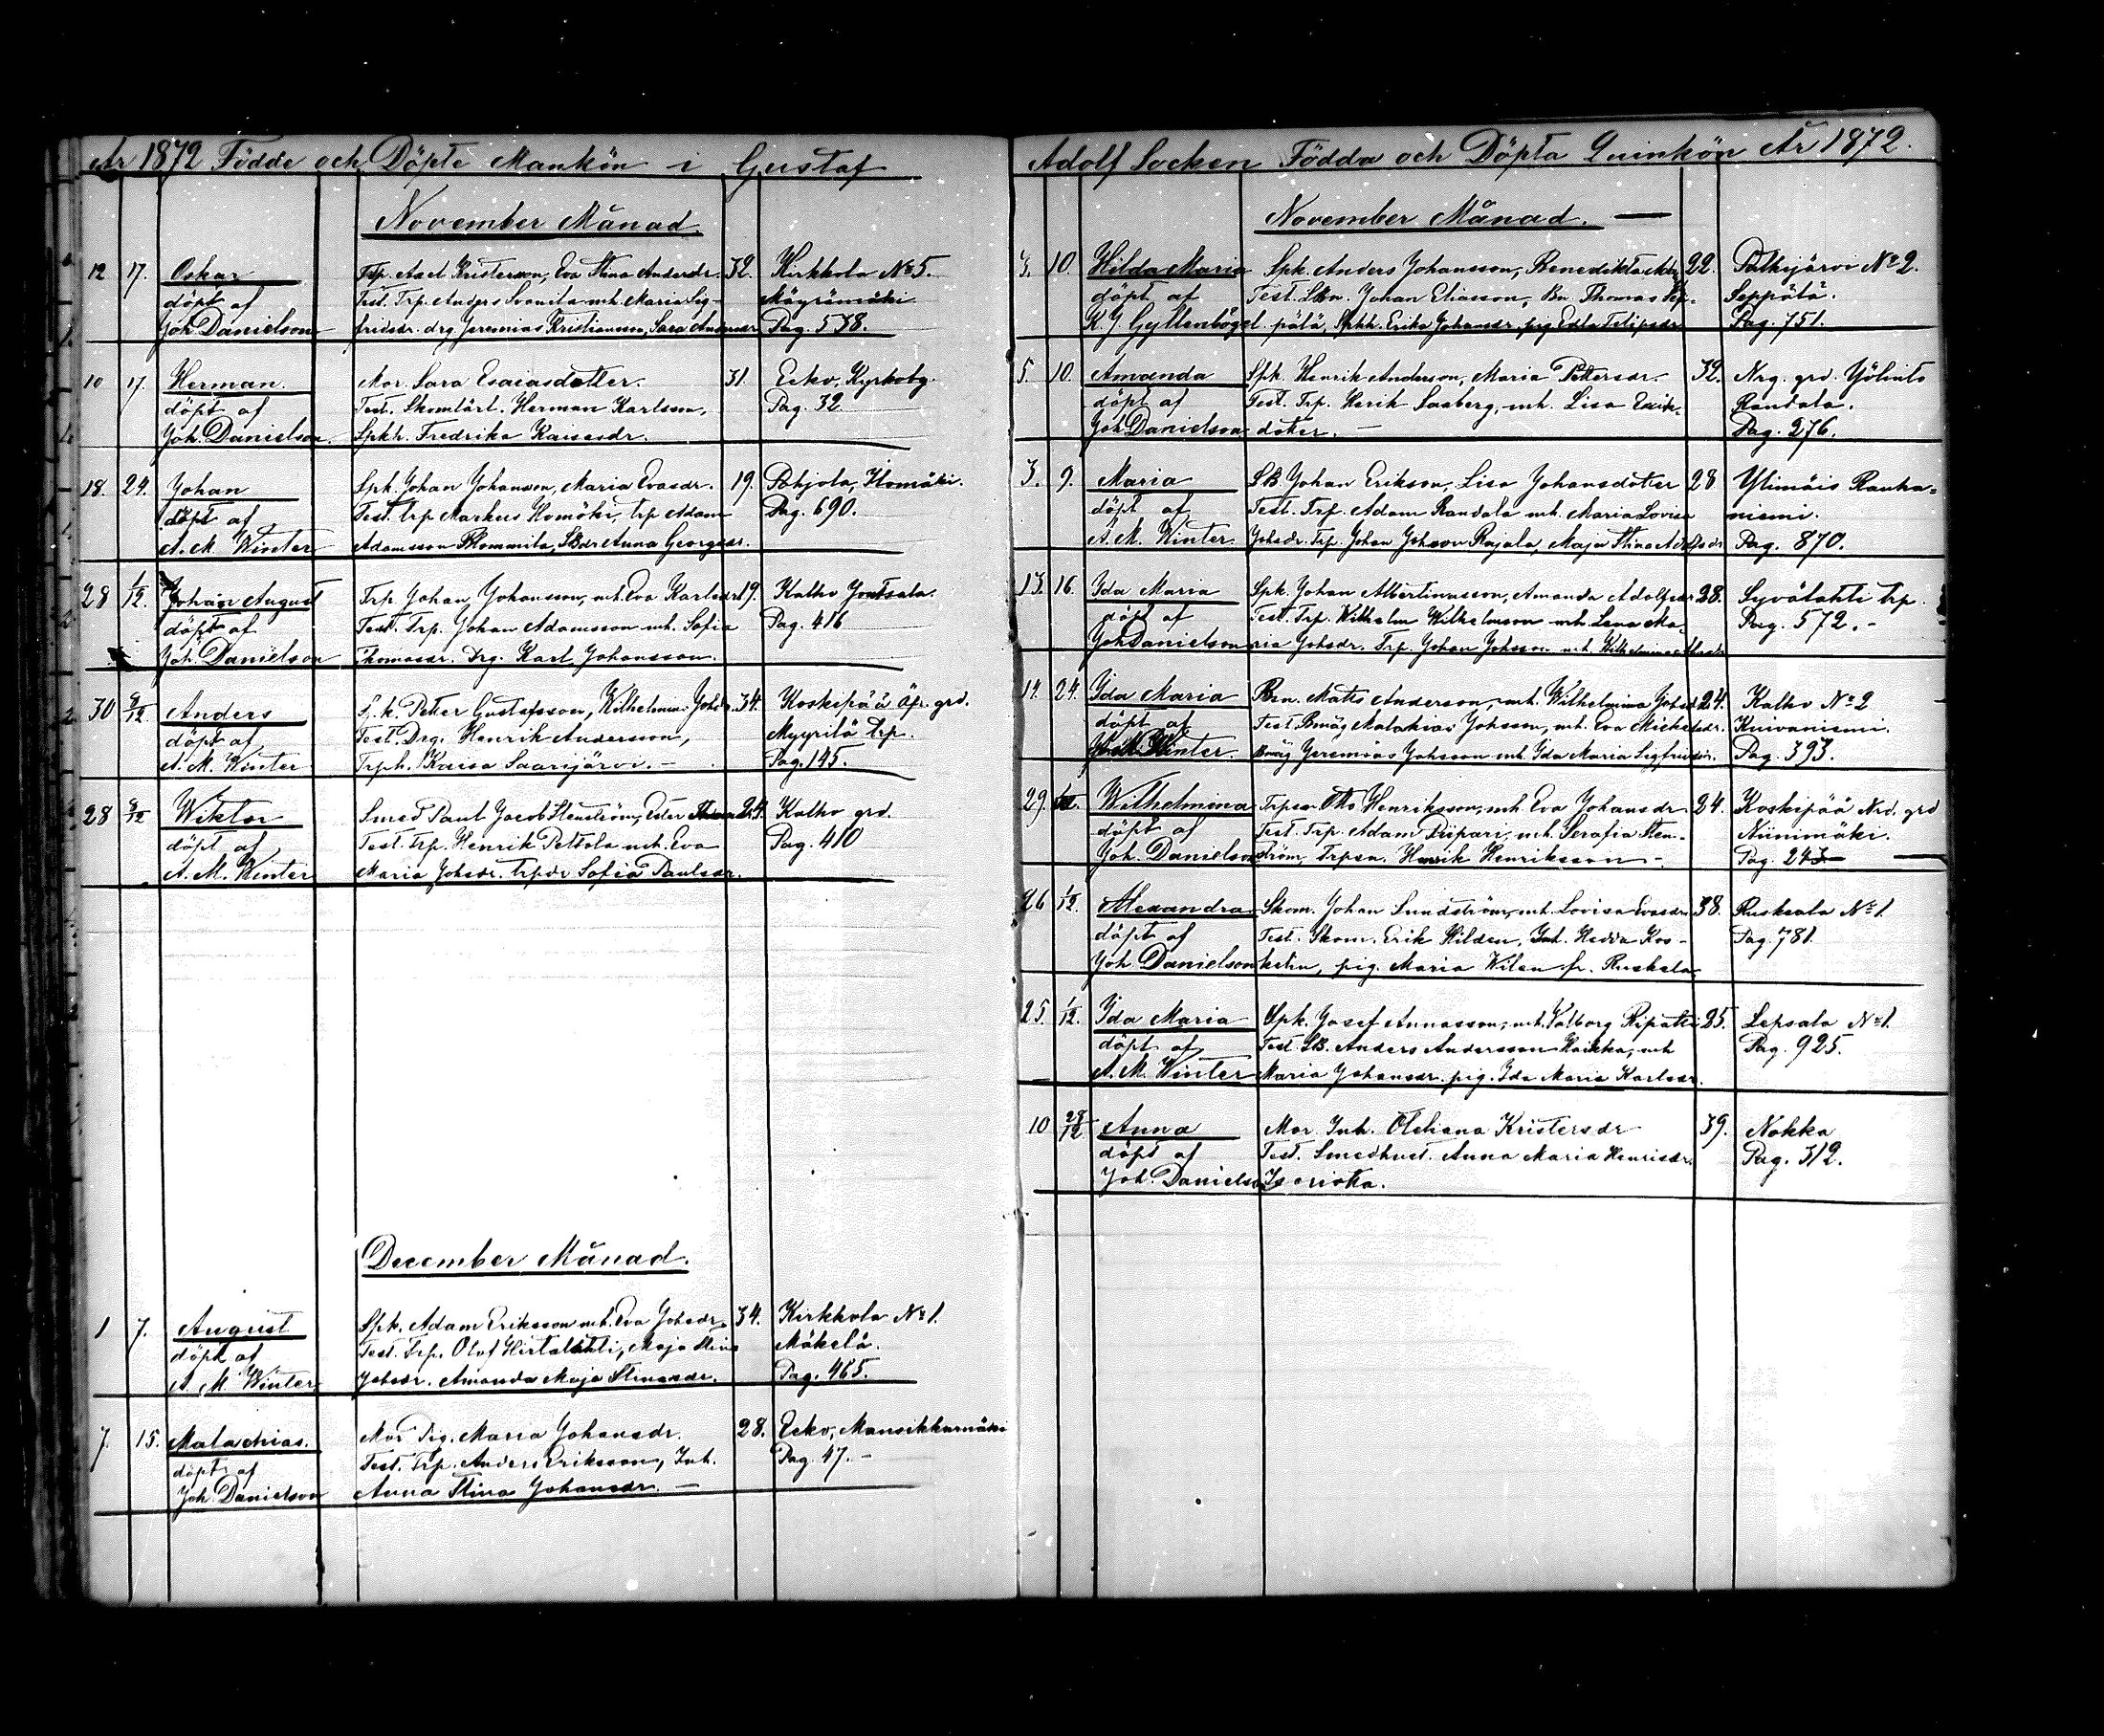 År 1872 Födde och Döpte Mankön i Gustaf
November Månad.
12 17. Oskar Trp. Axel Kristerson, Eva Stina Andersdr. 32. Kirkkola No 5.
döpt af Test. Trp. Anders Svanila mh. Maria Sig- Mäyrämäki
Joh. Danielson fridsdr. drg Jeremias Kristiansson, Sara Pag. 538.
10 17. Herman. Mor. Sara Esaiasdotter. 31. Ecko, Kyrkobg.
döpt af Test. Skomlärl. Herman Karlsson, Pag. 32.
Joh. Danielson. Spkh. Fredrika Kaisasdr.
18. 24. Johan Spk. Johan Johansson, Maria Evasdr. 19. Pohjola, Homäki.
döpt af Test. trp Markus Homäki, trp Adam Pag. 690.
A. M. Winter Adamsson Skommila, SBdr Anna Georgsdr.
28 1/12. Johan August Trp. Johan Johansson, mh. Eva Karlsdr 19. Kalho Jontsala.
döpt af Test. Trp. Johan Adamsson mh. Sofia Pag. 416
Joh. Danielson Thomasdr. Drg. Karl Johansson.
30 8/12 Anders Spk. Petter Gustafsson, Wilhelmina Johsdr. 34. Koskipää Öfr. grd.
döpt af Test. Drg. Henrik Andersson, Myyrilä Trp.
A. M. Winter Trph. Kaisa Saarijärvi. - Pag. 145.
28 8/12 Wiktor Smed Paul Jacob Stenström, Ester 24. Kalho grd.
döpt af Test. Trp. Henrik Pettola mh. Eva Pag. 410
A. M. Winter Maria Johsdr. trpdr Sofia Paulsdr.
December Månad.
1 7. August Spk. Adam Eriksson mh. Eva Johsdr 34. Kirkkola No 1.
döpt af Test. Trp. Olof Hirtalahti, Maja Stina Mäkelä.
A. M. Winter Johsdr. Amanda Maja Stinasdr. Pag. 465.
7. 15. Malachias. Mor Pig. Maria Johansdr. 28. Ecko, Mansikkamäki
döpt af Test. Trp. Anders Eriksson, Inh. Pag. 47. -
Joh. Danielson Anna Stina Johansdr. -
Adolf Socken Födda och Döpta Quinkön År 1872.
November Månad. -
3. 10. Hilda Maria Spk. Anders Johansson, Benedikta 22. Palkijärvi No 2.
döpt af Test. SBn. Johan Eliasson, Bn Thomas Sep- Seppälä.
K. J. Gyllenbögel pälä, Spkh. Erika Johansdr. pig Edla Filipsdr Pag. 751.
5. 10. Amanda Spk. Henrik Anderson, Maria Pettersdr. 32. Nrg. grd. Yölinto
döpt af Test. Trp. Herik Saaberg, mh. Lisa Erik- Randala.
Joh Danielson doter. - Pag. 276.
3. 9. Maria SB Johan Erikson, Lisa Johansdotter 28 Ylimäis Rauha-
döpt af Test. Trp. Adam Randala mh. Maria Lovisa niemi.
A. M. Winter. Johsdr. Trp. Johan Johsson Rajala, Maja Stina Pag. 870.
13. 16. Ida Maria Spk. Johan Albertinasson, Amanda Adolfsdr 28. Syvälahti trp.
döpt af Test. Trp. Wilhelm Wilhelmson mh Lena Ma- Pag. 572. -
Joh Danielson ria Johsdr. Trp. Johan Johsson mh. Wilhelmina
14. 24. Ida Maria Bn. Matts Anderson, mh. Wilhelmina Johsdr 24. Kalho No 2
döpt af Test. Bmåg Malakias Johsson, mh. Eva Michelsdr. Kuivaniemi.
Winter. Bmåg Jeremias Johsson mh Ida Maria Sigfridsdr. Pag. 393.
29. Wilhelmina Trpson Otto Henriksson, mh. Eva Johansdr 24. Koskipää Ned. grd
döpt af Test. Trp. Adam Pipari, mh. Serafia Sten- Niinimäki.
Joh. Danielson ström, Trpsn. Henrik Henriksson - Pag. 243
26 1/12. Alexandra Skom. Johan Sundström, mh. Lovisa Evasdr 38. Ruskala No 1.
döpt af Test. Skom. Erik Hilden, Inh. Hedda Kos- Pag. 781.
Joh Danielson kelin, pig. Maria Wilen fr. Ruskala
25. 1/12. Ida Maria Spk. Josef Annasson, mh. Valborg Ripatti 25. Lepsala No 1.
döpt af Test. SB. Anders Andersson Haikka, mh Pag. 925.
A. M. Winter Maria Johansdr. pig. Ida Maria Karlsdr.
10 28/12 Anna Mor Inh. Otteliana Kristersdr 39. Nokka
döpt af Test. Smedhust. Anna Maria Henrisdr. Pag. 312.
Joh. Danielson